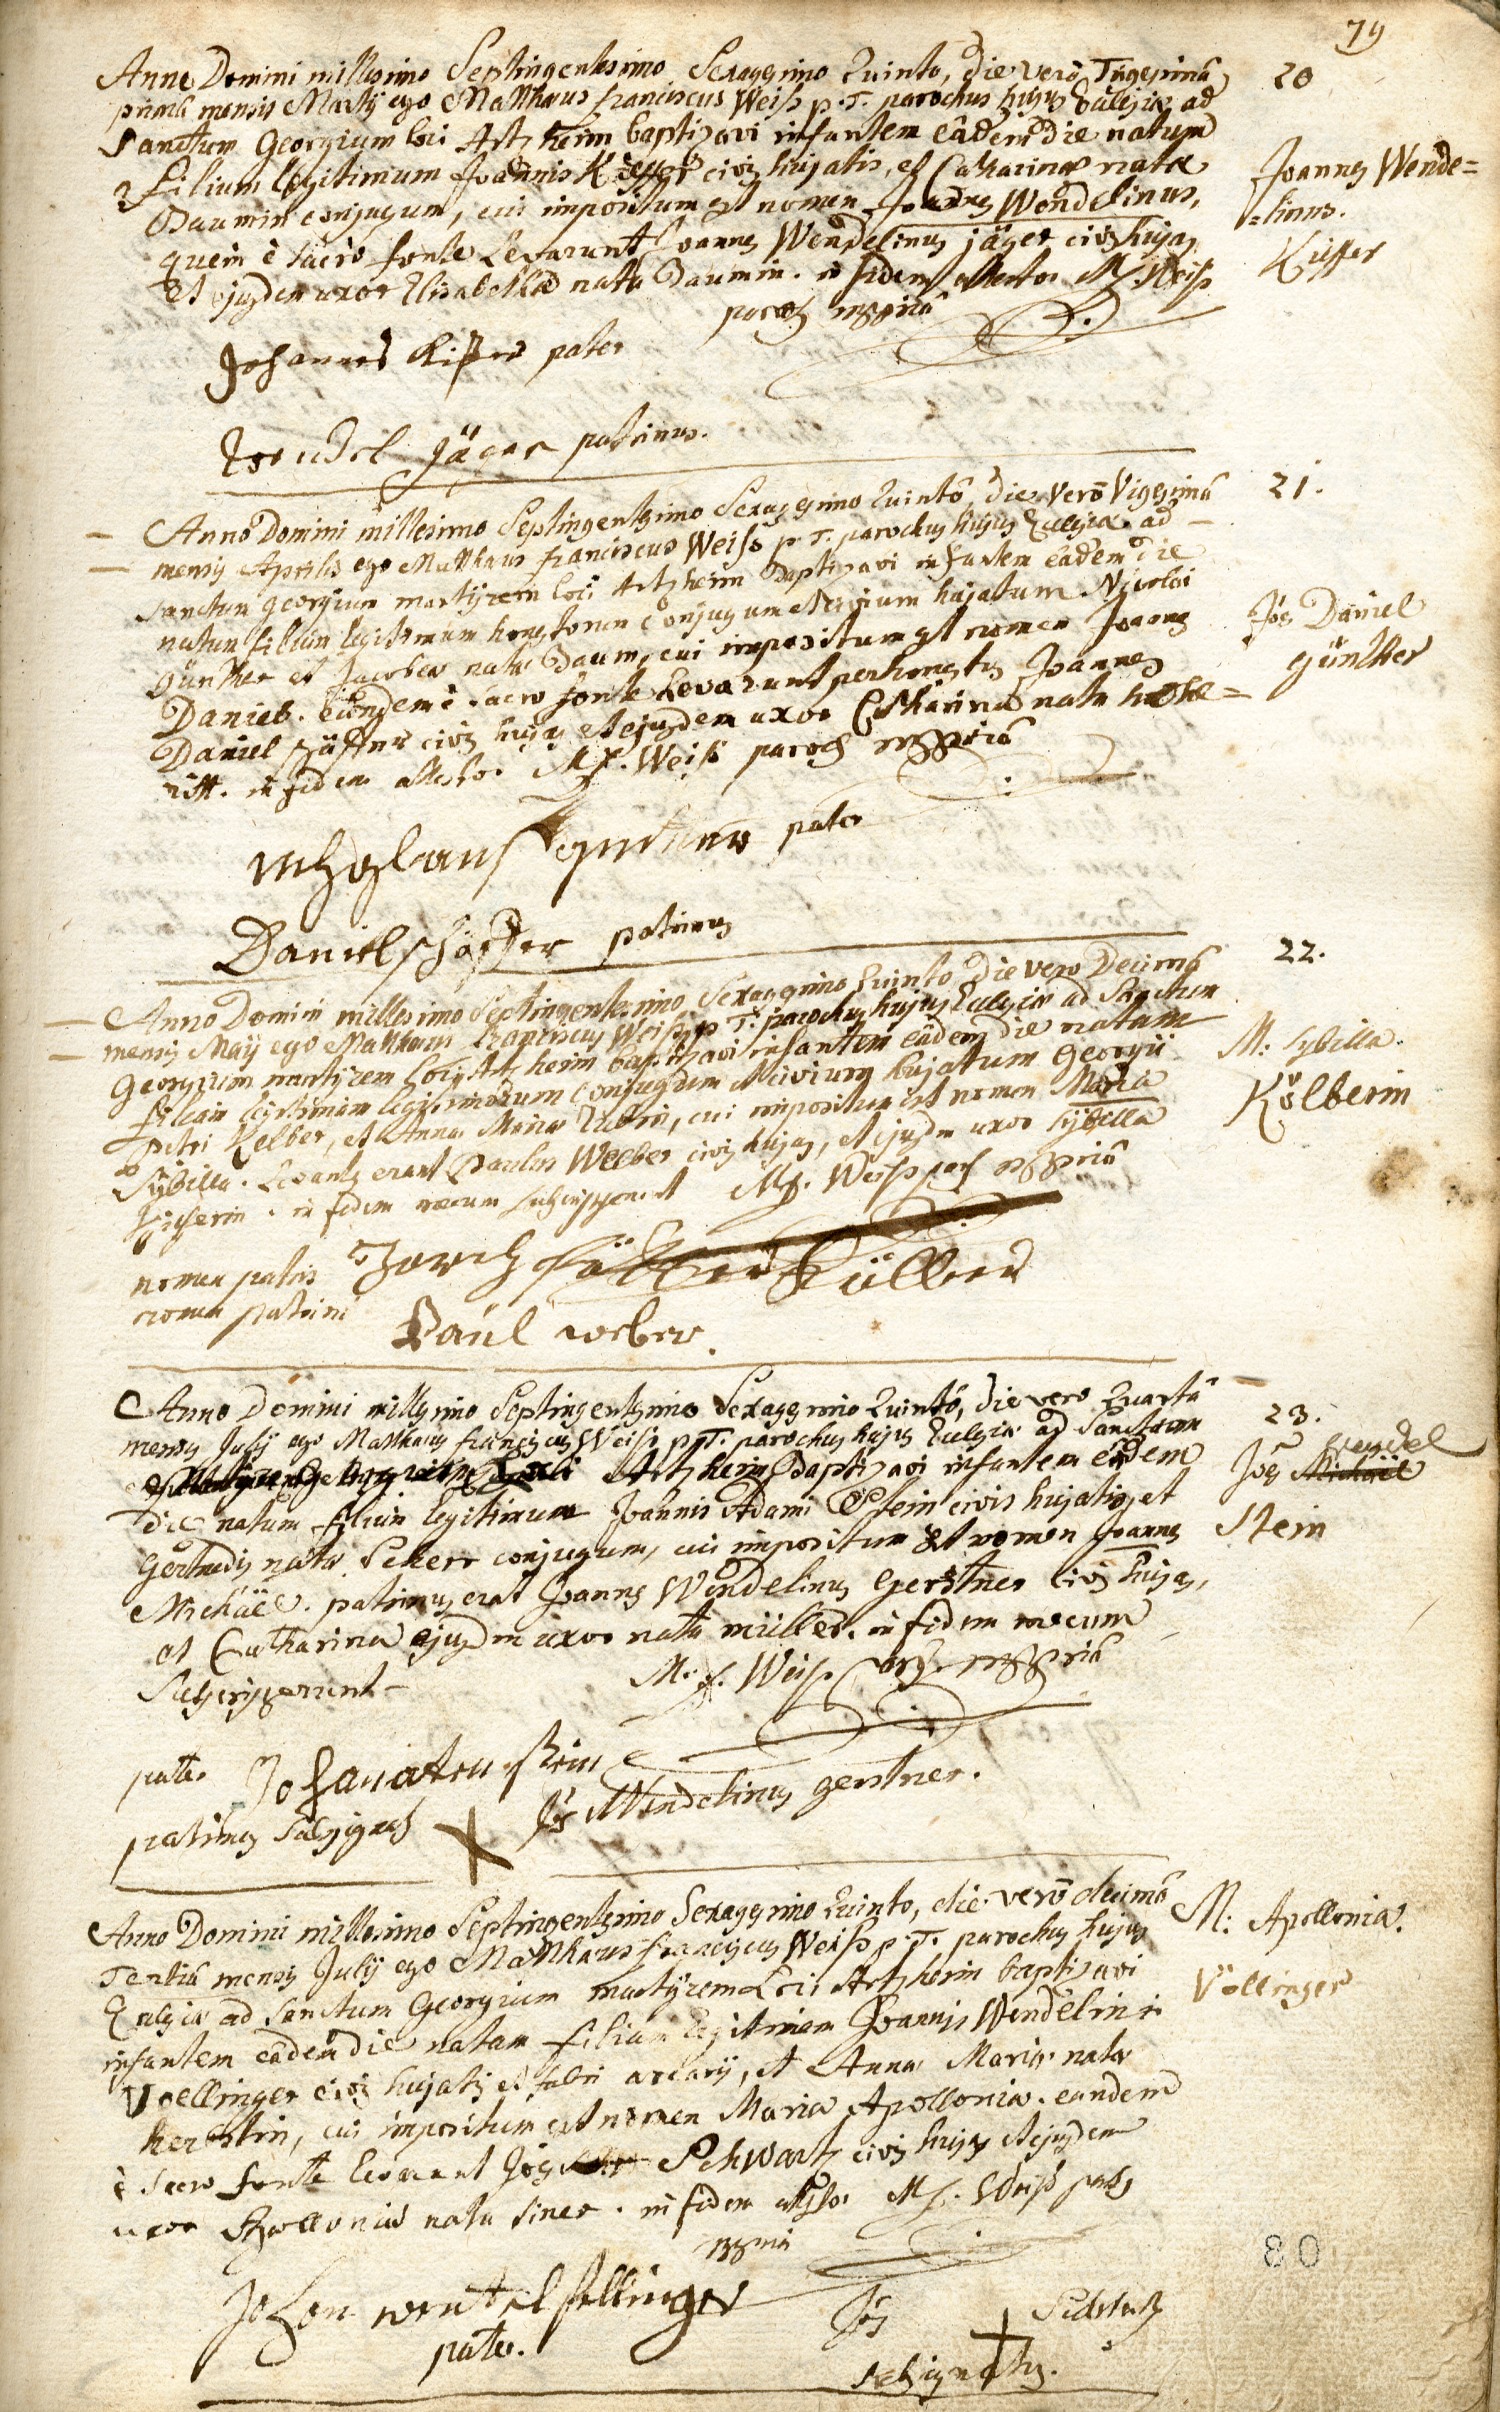 79
Anno Domini millesimo Septingentesimo Sexagesimo Quinto, die verò Trigesimâ
20
primâ mensis Martij ego Matthaeus Franciscus Weiss p. T. parochus hujus Ecclesiae ad
Sanctum Georgium loci Artzheim baptizavi infantem eâdem die natum
filium legitimum Joannis Kieffer civis hujatis, et Catharinae natae
Joannes Wende=
Daumin conjugum, cui impositum est nomen Joannes Wendelinus,
=linus.
quem è sacro fonte levarunt Joannes Wendelinus jäger civis hujas
Kieffer
et ejusdem uxor Elisabetha nata Daumin. in fidem attestor M.f. Weiss
paroch mppriâ
Johannes pater
Wendel Jäger patrinus.
21.
Anno Domini millesimo Septingentesimo Sexagesimo Quintô, die verò Vigesimâ
mensis Aprilis ego Matthaeus franciscus Weiss p. T. parochus hujus Ecclesiae ad
Sanctum georgium martÿrem loci Artzheim baptizavi infantem eâdem die
natum filium legitimum honestorum conjugum et civium hujatum Nicolai
Jões Daniel
Günther et Jacobea nata Daum, cui impositum est nomen Joannes
günther
Daniel. eundem è sacro fonte levarunt perhonestus Joannes
Daniel schäffer civis hujas et ejusdem uxor Catharina nata
in fidem attestor M.f. Weiss paroch mppriâ
pater
Daniel schäffer patrinus
22.
Anno Domini millesimo Septingentesimo Sexagesimo Quinto die vero Decimâ
mensis Maij ego Matthaeus Franciscus Weiss p. T. parochus hujus Ecclesiae ad Sanctum
Georgium martÿrem loci Artzheim baptizavi infantem eâdem die natam
M: sybilla.
filiam legitimam legitimorum conjugum et civium hujatum Georgii
Kölberin
petri Kelber, et Anna Maria, cui impositum est nomen Maria
Sÿbilla. Levantes erant Paulus Weeber civis hujas, et ejusdem uxor sÿbilla
in fidem mecum subscripserunt M.f. Weiss par mppriâ
nomen patris
nomen patrini
Paul weber.
Anno Domini millesimo Septingentesimo Sexagesimo Quintô, die vero Quartâ
23.
mensis Julij ego Matthaeus franciscus Weiss p. T. parochus hujus Ecclesiae ad Sanctum
Wendel
Artzheim baptizavi infantem eâdem
Jões Michäel
die natum filium legitimum Joannis Adami Stein civis hujatis, et
Stein
Gertrudis nata Scherr conjugum, cui impositum est nomen Joannes
Michäel. patrinus erat Joannes Wendelinus Gerstner civis hujas,
et Catharina ejusdem uxor nata müller. in fidem mecum
Subscripserunt
M.f. Weiss mppriâ
pater
patrinus subsignat
Jões Wendelinus gerstner.
Anno Domini millesimo Septingentesimo Sexagesimo Quinto, die verò decimâ
M: Apollonia.
Tertiâ mensis Julij ego Matthaeus franciscus Weiss p. T. parochus hujus
Ecclesiae ad Sanctum Georgium martÿrem Loci Artzheim baptizavi
Völlinger
infantem eâdem die natam filiam legitimam Joannis Wendelini
Voellinger civis hujatis et fabri arcarij, et Anna Maria nata
cui impositum est nomen Maria Apollonia. eandem
è Sacro fonte levarunt Jões Schwartz civis hujas et ejusdem
uxor Apollonia nata siner. in fidem attestor M.f. Weiss
mppriâ
pater.
Jões
subsignatus.
80